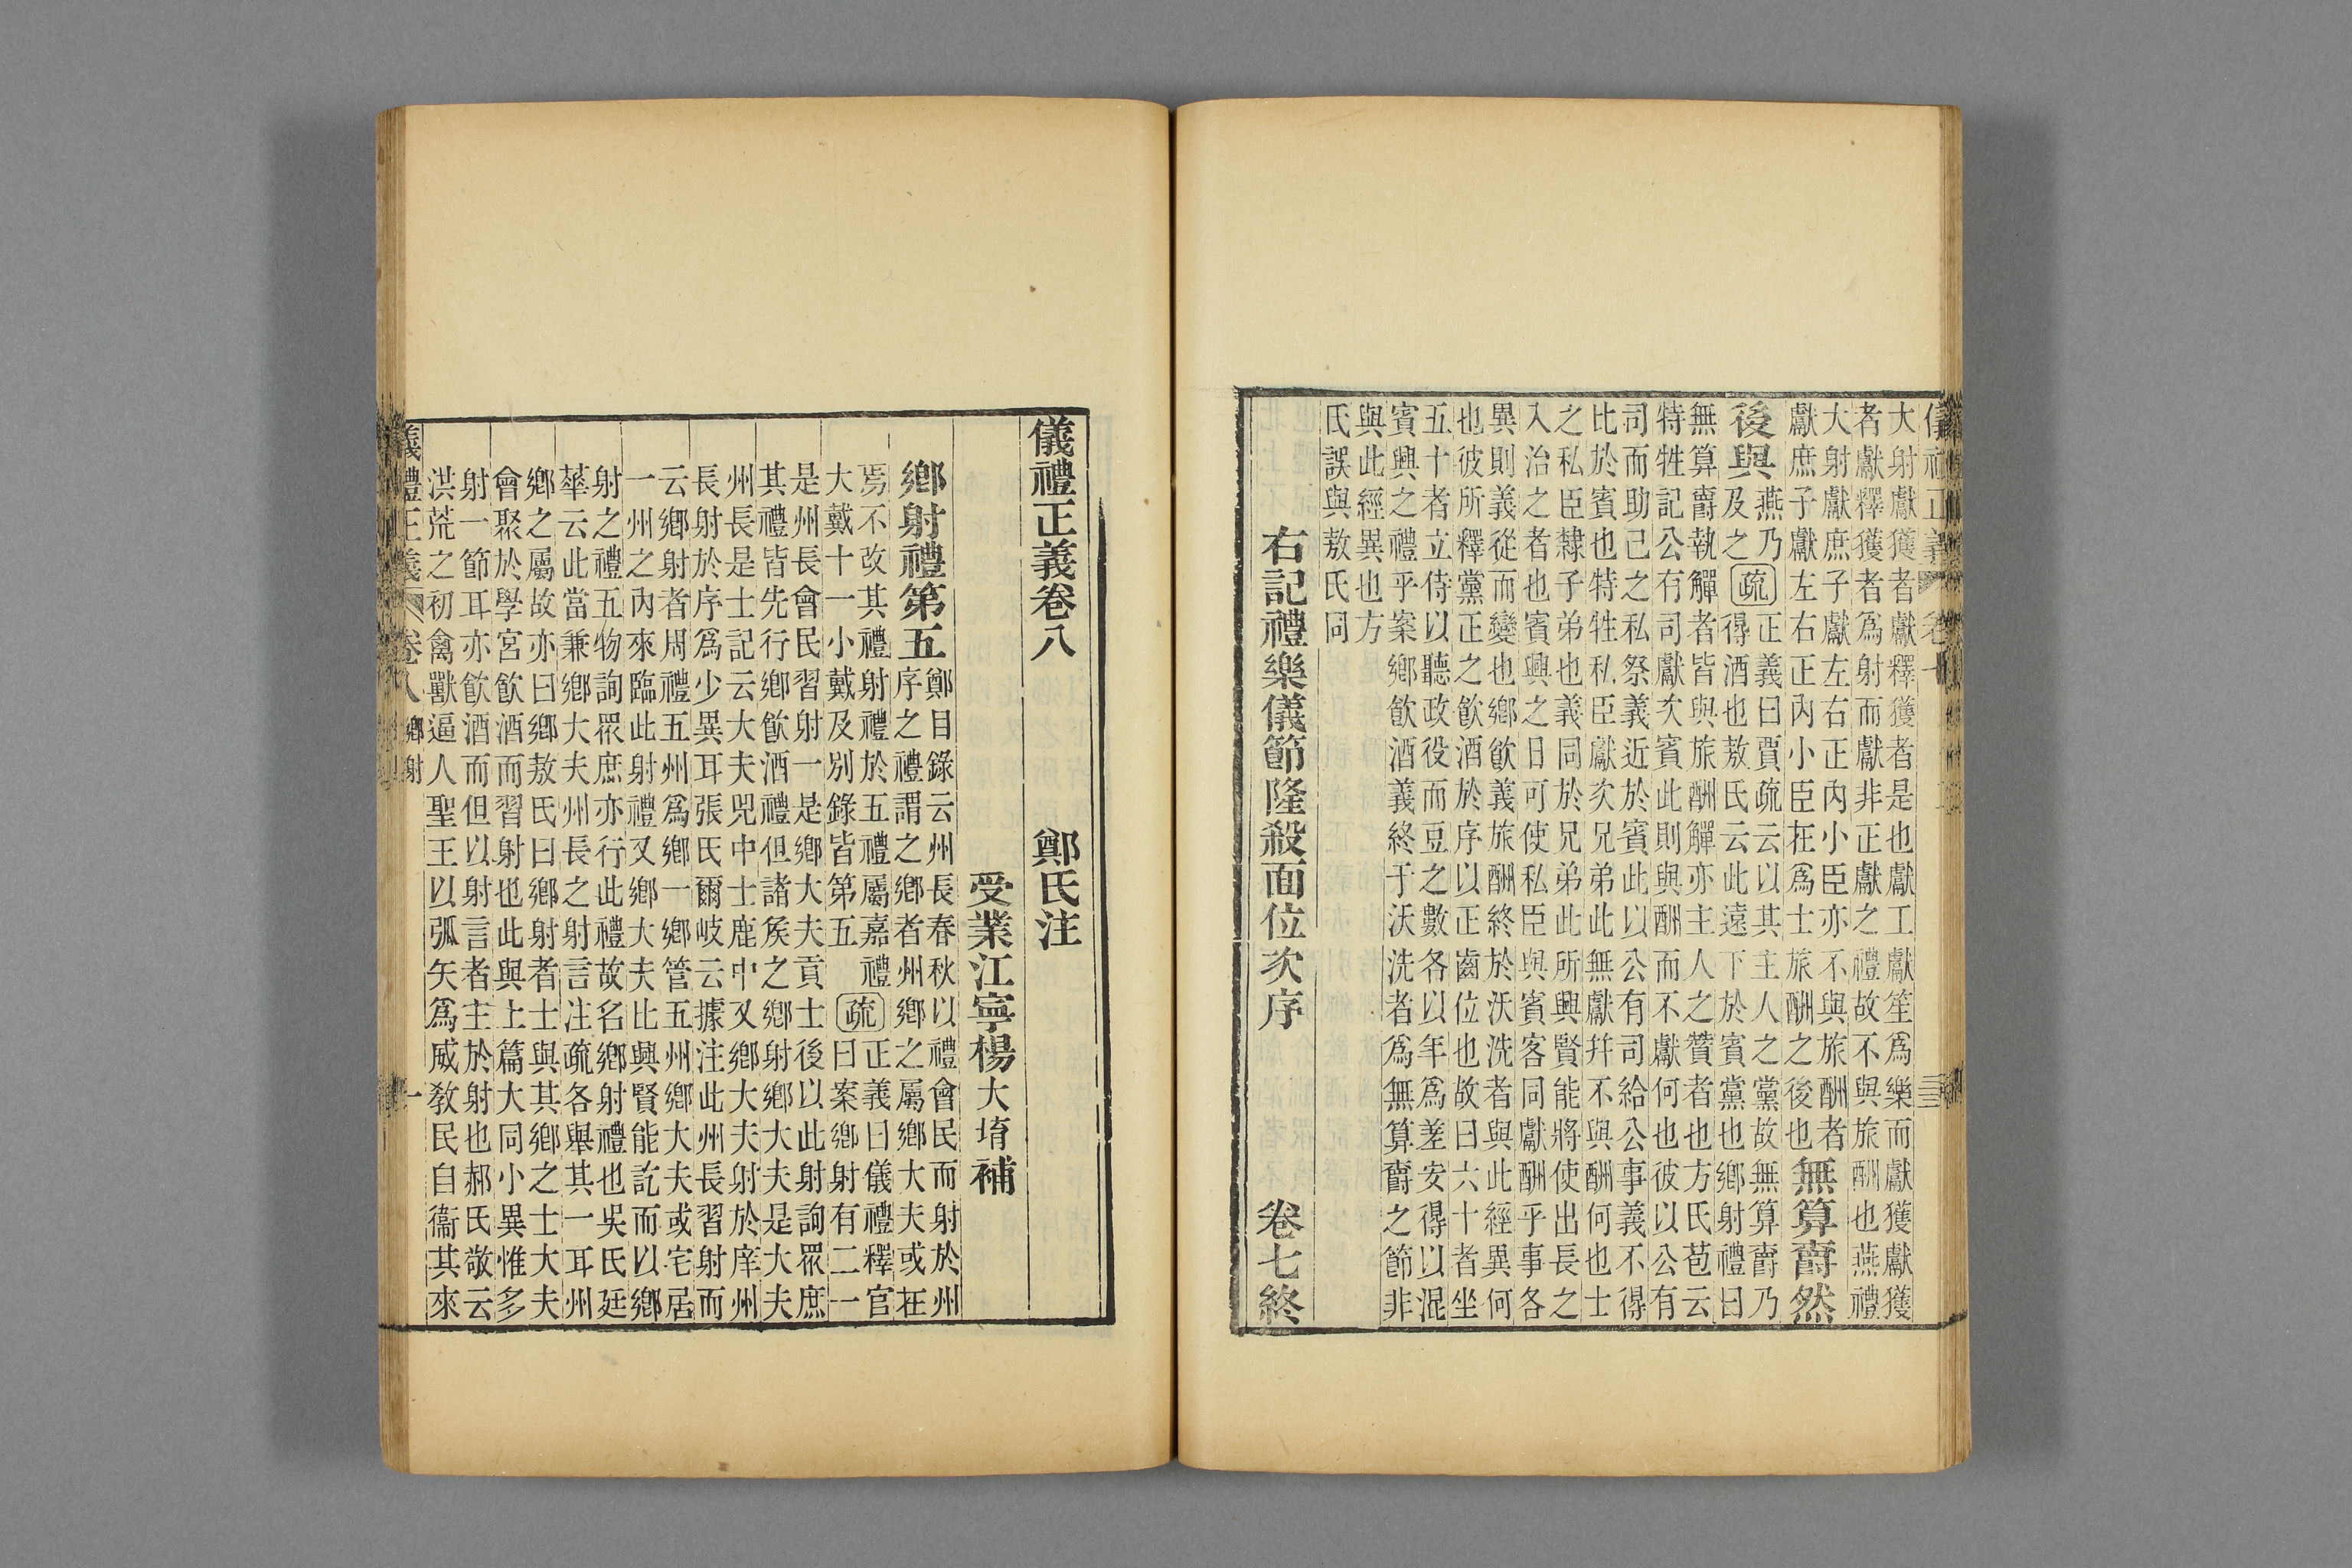 儀禮正義 卷七
大射獻獲者獻釋獲者是也獻工獻笙爲樂而獻獲獻獲
者獻釋獲者爲射而獻非正獻之禮故不與旅酬也燕禮
大射獻庶子獻左右正內小臣亦不與旅酬者
獻庶子獻左右正內小臣在爲士旅酬之後也
無算爵然
後與
燕乃
及之
疏
正義曰賈疏云以其主人之黨故無算爵乃
得酒也敖氏云此遠下於賓黨也鄉射禮曰
無算爵執觶者皆與旅酬觶亦主人之贊者也方氏苞云
特牲記公有司獻次賓此則與酬而不獻何也彼以公有
司而助己之私祭義近於賓此以公有司給公事義不得
比於賓也特牲私臣獻次兄弟此無獻幷不與酬何也士
之私臣隸子弟也義同於兄弟此所興賢能將使出長之
入治之者也賓興之日可使私臣與賓客同獻酬乎事各
異則義從而變也鄉飲義旅酬終於沃洗者與此經異何
也彼所釋黨正之飲酒於序以正齒位也故曰六十者坐
五十者立侍以聽政役而豆之數各以年爲差安得以混
賓興之禮乎案鄉飲酒義終于沃洗者爲無算爵之節非
與此經異也方
氏誤與敖氏同
右記禮樂儀節隆殺面位次序 卷七終
儀禮正義卷八 鄭氏注
受業江寧楊大堉補
鄉射禮第五
鄭目錄云州長春秋以禮會民而射於州
序之禮謂之鄉者州鄉之屬鄉大夫或在
焉不改其禮射禮於五禮屬嘉禮
大戴十一小戴及別錄皆第五
疏
正義曰儀禮釋官
曰案鄉射有二一
是州長會民習射一是鄉大夫貢士後以此射詢眾庶
其禮皆先行鄉飲酒禮但諸侯之鄉射鄉大夫是大夫
州長是士記云大夫兕中士鹿中又鄉大夫射於庠州
長射於序爲少異耳張氏爾岐云據注此州長習射而
云鄉射者周禮五州爲鄉一鄉管五州鄉大夫或宅居
一州之內來臨此射禮又鄉大夫比興賢能訖而以鄉
射之禮五物詢眾庶亦行此禮故名鄉射禮也吳氏廷
華云此當兼鄉大夫州長之射言注疏各舉其一耳州
鄉之屬故亦曰鄉敖氏曰鄉射者士與其鄉之士大夫
會聚於學宮飲酒而習射也此與上篇大同小異惟多
射一節耳亦飲酒而但以射言者主於射也郝氏敬云
洪荒之初禽獸逼人聖王以弧矢爲威敎民自衞其來
儀禮正義 卷八 鄉射 一